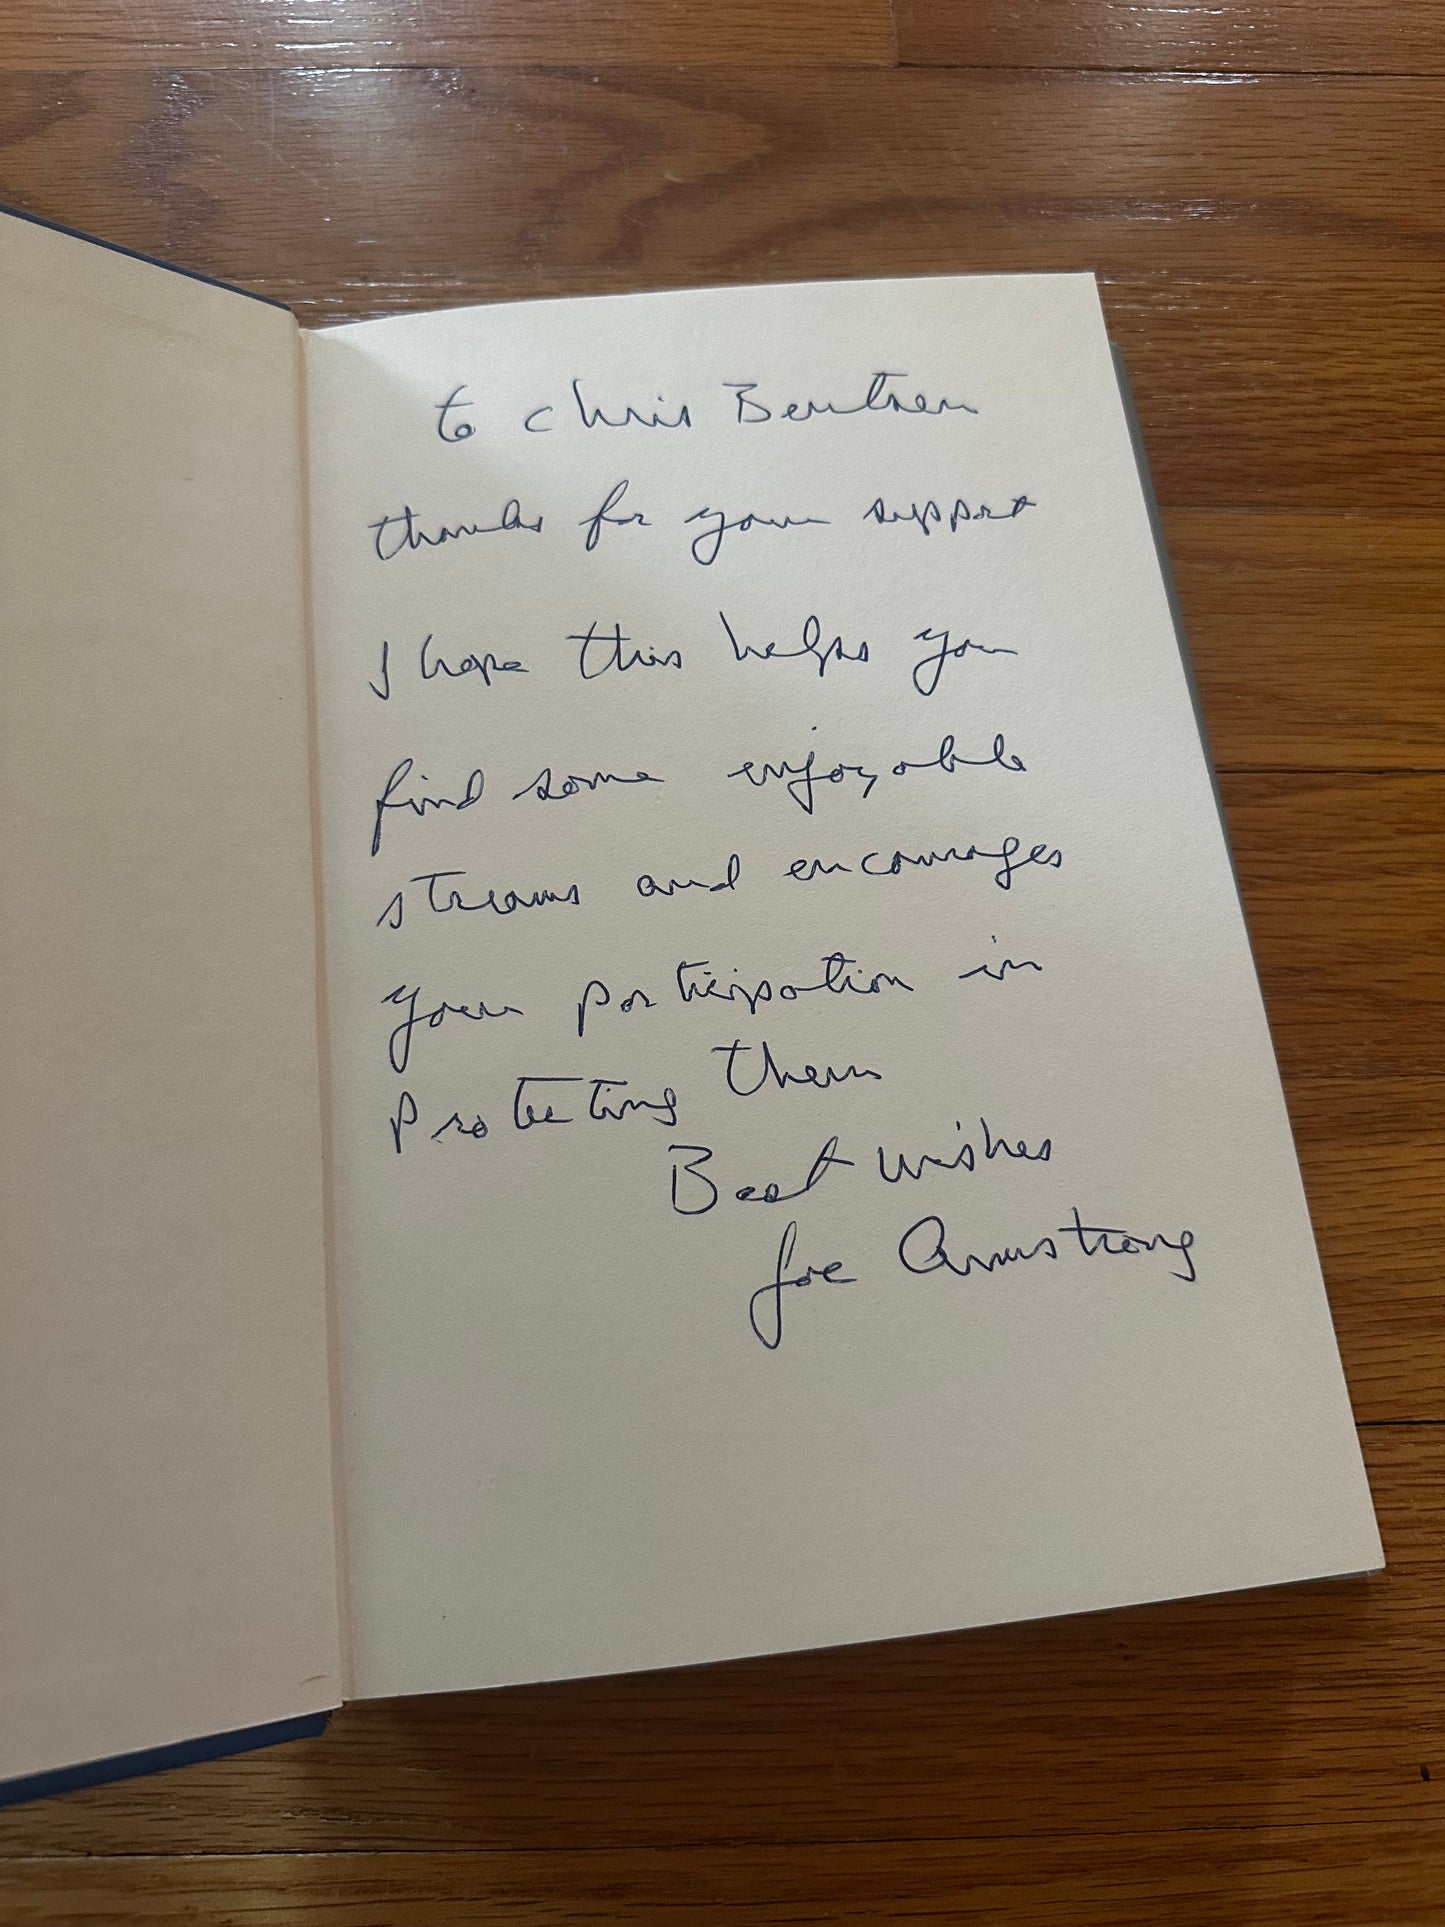 to Chris Bentsen
thanks for your support
I hope this helps you
find some enjoyable
streams and encourages
your participation in
protecting them
Best wishes
Joe Armstrong